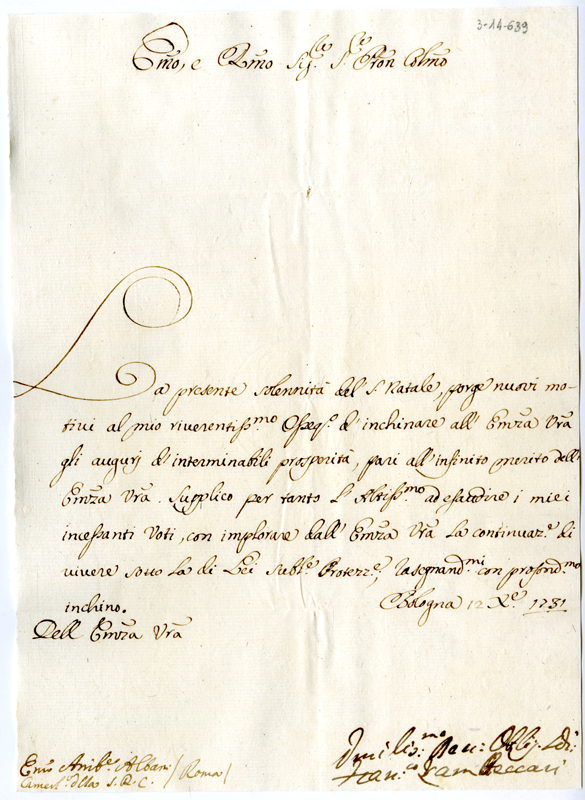 3-14-639
Emo, e Rmo Sig.r S.r Pron Colmo
La presente solennità del S. Natale, porge nuovi mo-
tivi al mio riverentiss.mo Osseq.o d'inchinare all' Emza Vra
gli augurj d'interminabili prosperità, pari all'infinito merito dell'
Emza Vra. Supplico per tanto l'Altiss.mo ad esaudire i miei
incessanti Voti, con implorare dall' Emza Vra la continuaz.e di
vivere sotto la di Lei Subl.e Protezz.e, rasegnand.mi con profond.mo
inchino.
Bologna 12 Xe. 1731
Dell Emza Vra
Emo Anibe. Albani / Roma /
Camerl.o della S. R. C.
Umilis.mo Obblig.
Fran.co Zambeccari